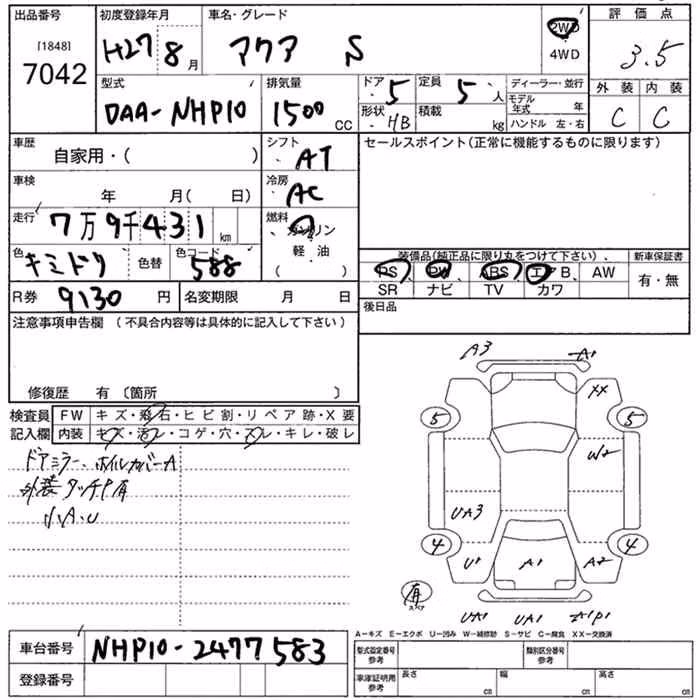 出品番号 初度登録年月 車名・グレード 評価点
[1848] H27 8月 アクア S 2WD 3.5
7042 4WD
型式 排気量 ドア 定員 ディーラー・並行 外装 内装
DAA-NHP10 1500 CC 5 5人 モデル年式 年 C C
形状 HB 積載 kg ハンドル 左・右
車歴 シフト セールスポイント(正常に機能するものに限ります)
自家用・( ) AT
車検 冷房
年 月( 日) AC
走行 燃料
7万9千431 km ガソリン
色 色コード 軽・油 装備品(純正品に限り丸をつけて下さい)、 新車保証書
キミドリ 色替 588 ( ) PS PW ABS エアB、 AW 有・無
SR ナビ TV カワ
R券 9130 円 名変期限 月 日 後日品
注意事項申告欄 (不具合内容等は具体的に記入して下さい)
修復歴 有〔箇所 〕
検査員 FW キズ・飛石・ヒビ割・リペア跡・X要
記入欄 内装 キズ・汚レ・コゲ・穴・スレ・キレ・破レ
ドアミラー、ホイルカバーA
外装タッチP有
A3 A1
XX
5 5
W2
UA3
4 4
U1 A1 A2
有
スペア
UA1 UA1 A1P1
A-キズ E-エクボ U-凹み W-補修跡 S-サビ C-腐食 XX-交換済
車台番号 NHP10-2477583 型式指定番号 参考 類別区分番号 参考
登録番号 車庫証明用 参考 長さ cm 幅 cm 高さ cm